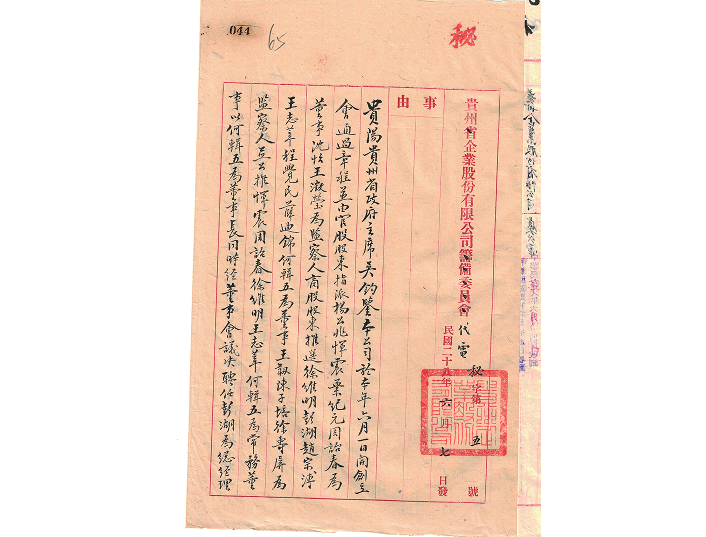 044
65
秘
貴州省企業股份有限公司籌備委員會代電
秘字第五號
民國二十八年六月七日發
事由
貴陽貴州省政府主席吳鈞鑒本公司於本年六月一日開創立
會通過章程並由官股股東指派楊公兆惲震粟紀元周詒春為
董事沈怯王澂瑩為監察人商股股東推選徐維明彭湖趙宗溥
王志莘程覺民薛迪錦何輯五為董事王韌陳子培徐專屏為
監察人並公推惲震周詒春徐維明王志莘何輯五為常務董
事以何輯五為董事長同時經董事會議決聘任彭湖為總經理